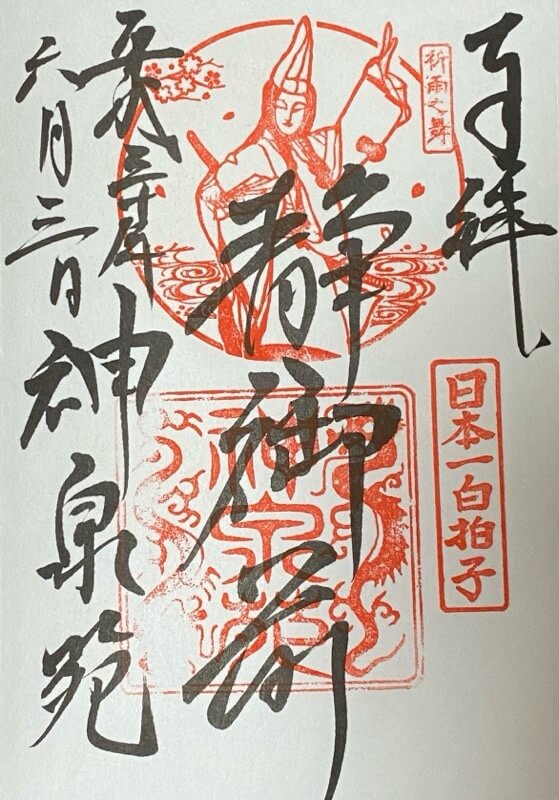 奉拝
祈雨之舞
日本一白拍子
静御前
神泉苑
平成三十年
六月三日
神泉苑